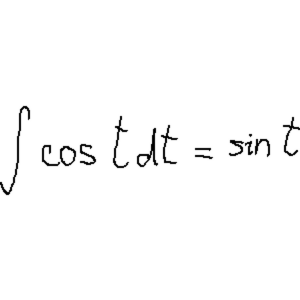 ∫ cos t dt = sin t